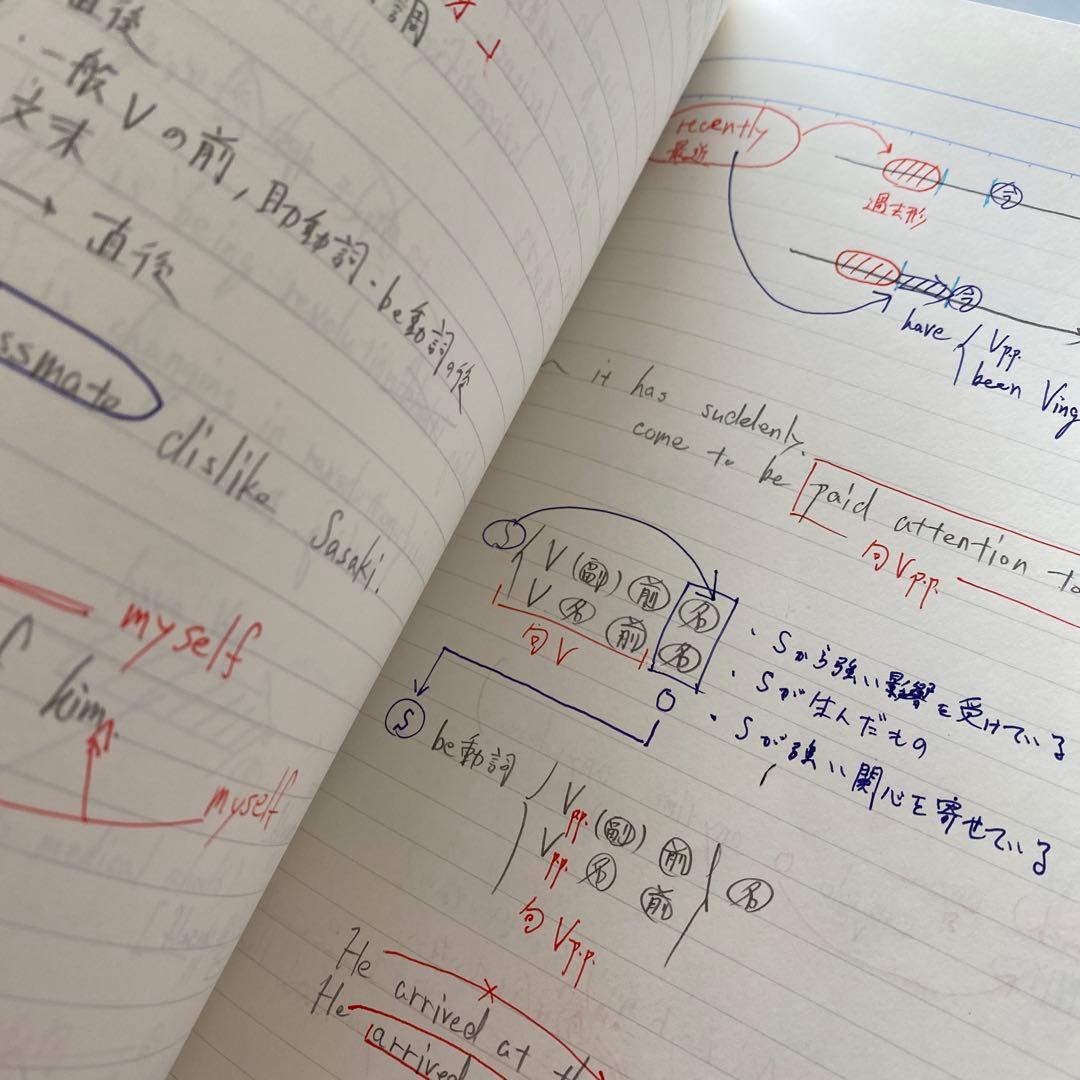 直後
調
・一般Vの前, 助動詞・be動詞の後
文末
→ 直後
dislike Sasaki.
myself
him
myself
recently
最近
今
過去形
今
have Vp.p.
been Ving
~ it has suddenly
come to be paid attention to
句Vp.p.
S V (副) 前 名
V 名 前 名
句V
O
・Sから強い影響を受けている
・Sが生んだもの
・Sが強い関心を寄せている
S be動詞 Vp.p. (副) 前
Vp.p. 名 前 名
句Vp.p.
He arrived at
He arrived